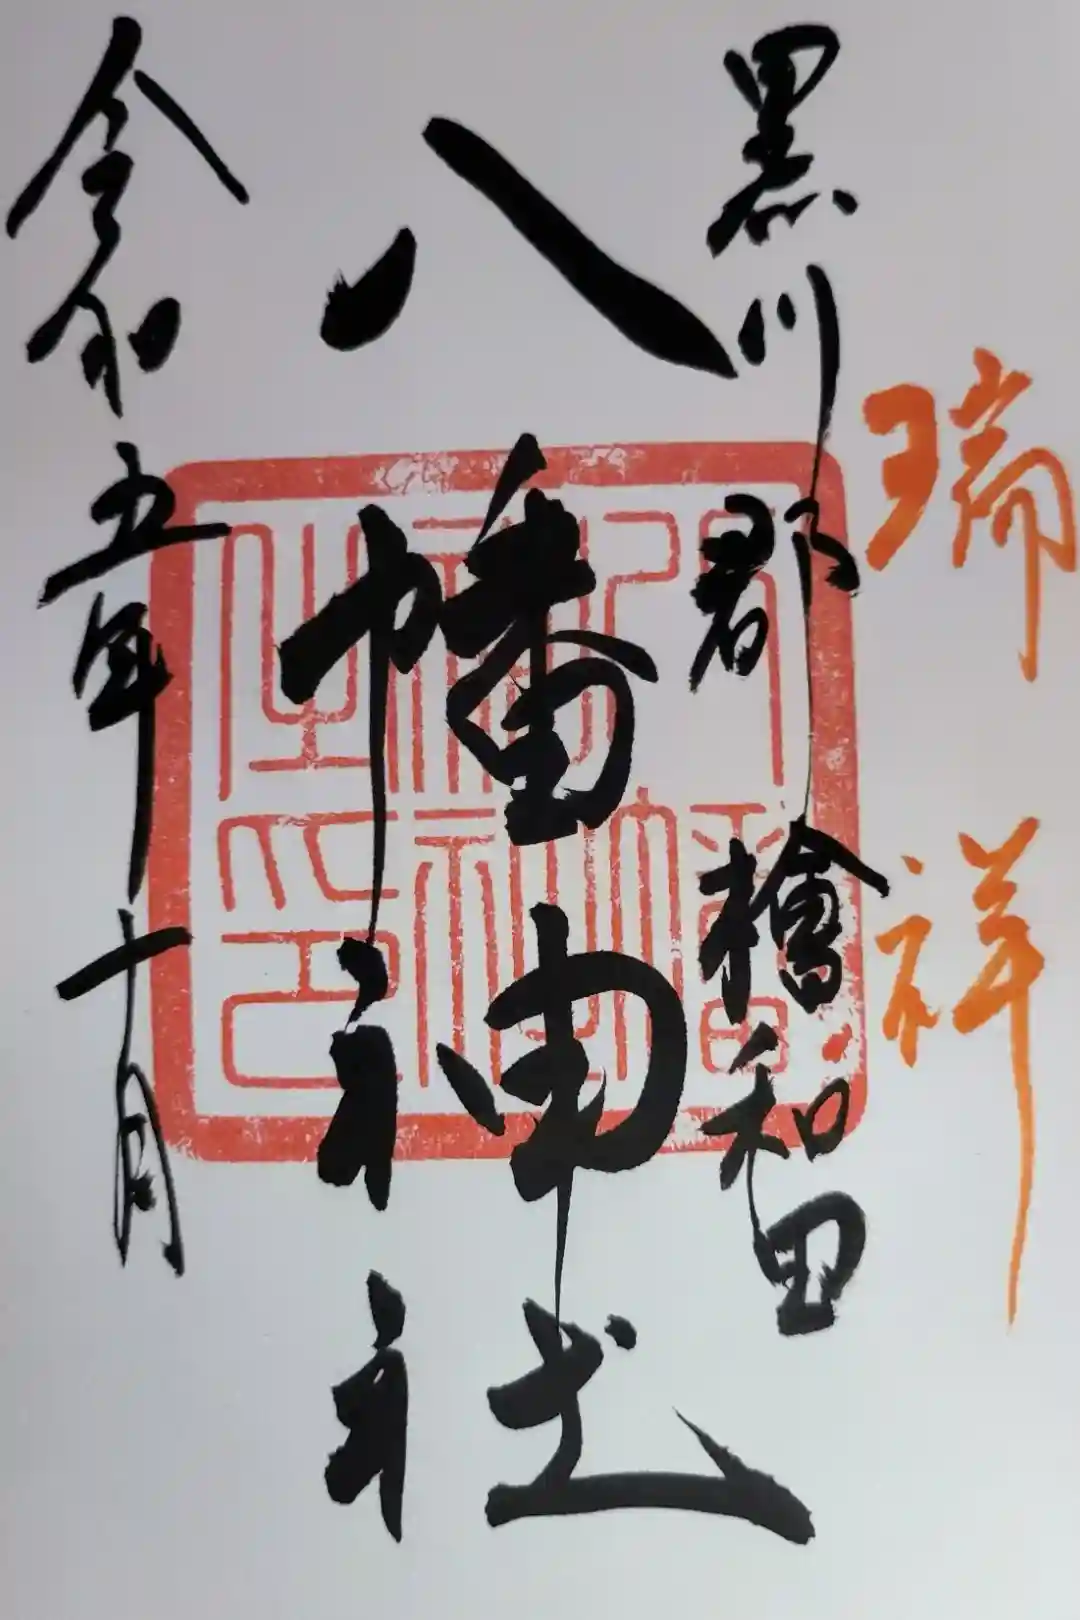 瑞祥
黒川郡檜和田
八幡神社
令和五年十月
八幡神社之印